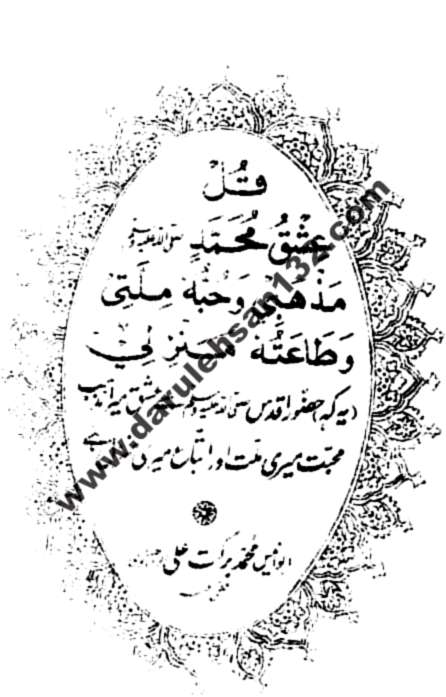 قُلْ
عِشْقُ مُحَمَّدٍ صلی اللہ علیہ وسلم
مَذْهَبِيْ وَحُبُّهٗ مِلَّتِيْ
وَطَاعَتُهٗ مَنْزِلِيْ
(یہ کہ) حضور اقدس صلی اللہ علیہ وسلم عشق میرا
محبت میری ملت اور اتباع میری ہے
ابو انیس محمد برکت علی
www.darulehsan132.com